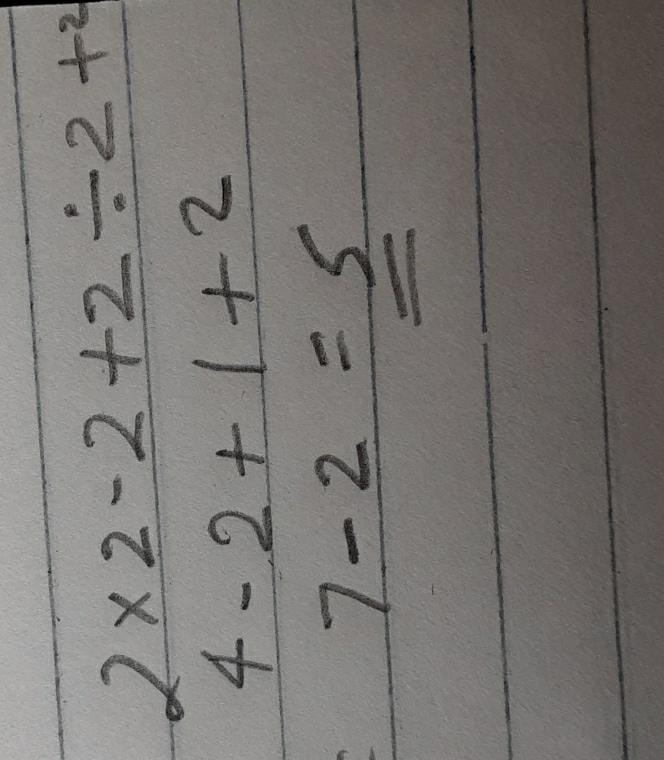 2 × 2 - 2 + 2 ÷ 2 + 2
4 - 2 + 1 + 2
7 - 2 = 5